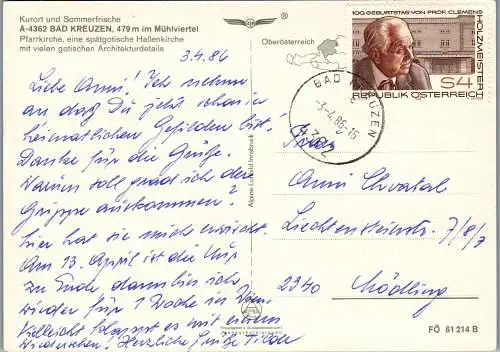 Kurort und Sommerfrische
A-4362 BAD KREUZEN, 479 m im Mühlviertel
Pfarrkirche, eine spätgotische Hallenkirche
mit vielen gotischen Architekturdetails
®
Oberösterreich
100. GEBURTSTAG VON PROF. CLEMENS
HOLZMEISTER
S4
REPUBLIK ÖSTERREICH
BAD KREUZEN
-3.-4.86-16
4362
3.4.86
Liebe Anni! Ich nehme
an daß Du jetzt schon in
heimatlichen Gefilden bist.
Danke für die Grüße.
Warum soll grad ich der
Grippe auskommen?
hier hat sie mich erwischt
Am 13. April ist die Kur
zu Ende dann bin ich
wieder für 1 Woche in Wien
Vielleicht klappt es mit einem
Wiedersehen! Herzliche Grüße Tilde
Frau
Anni Chvatal
Liechtensteinstr. 7/8/7
2340 Mödling
Alpine Luftbild Innsbruck
FÖ 61 214 B